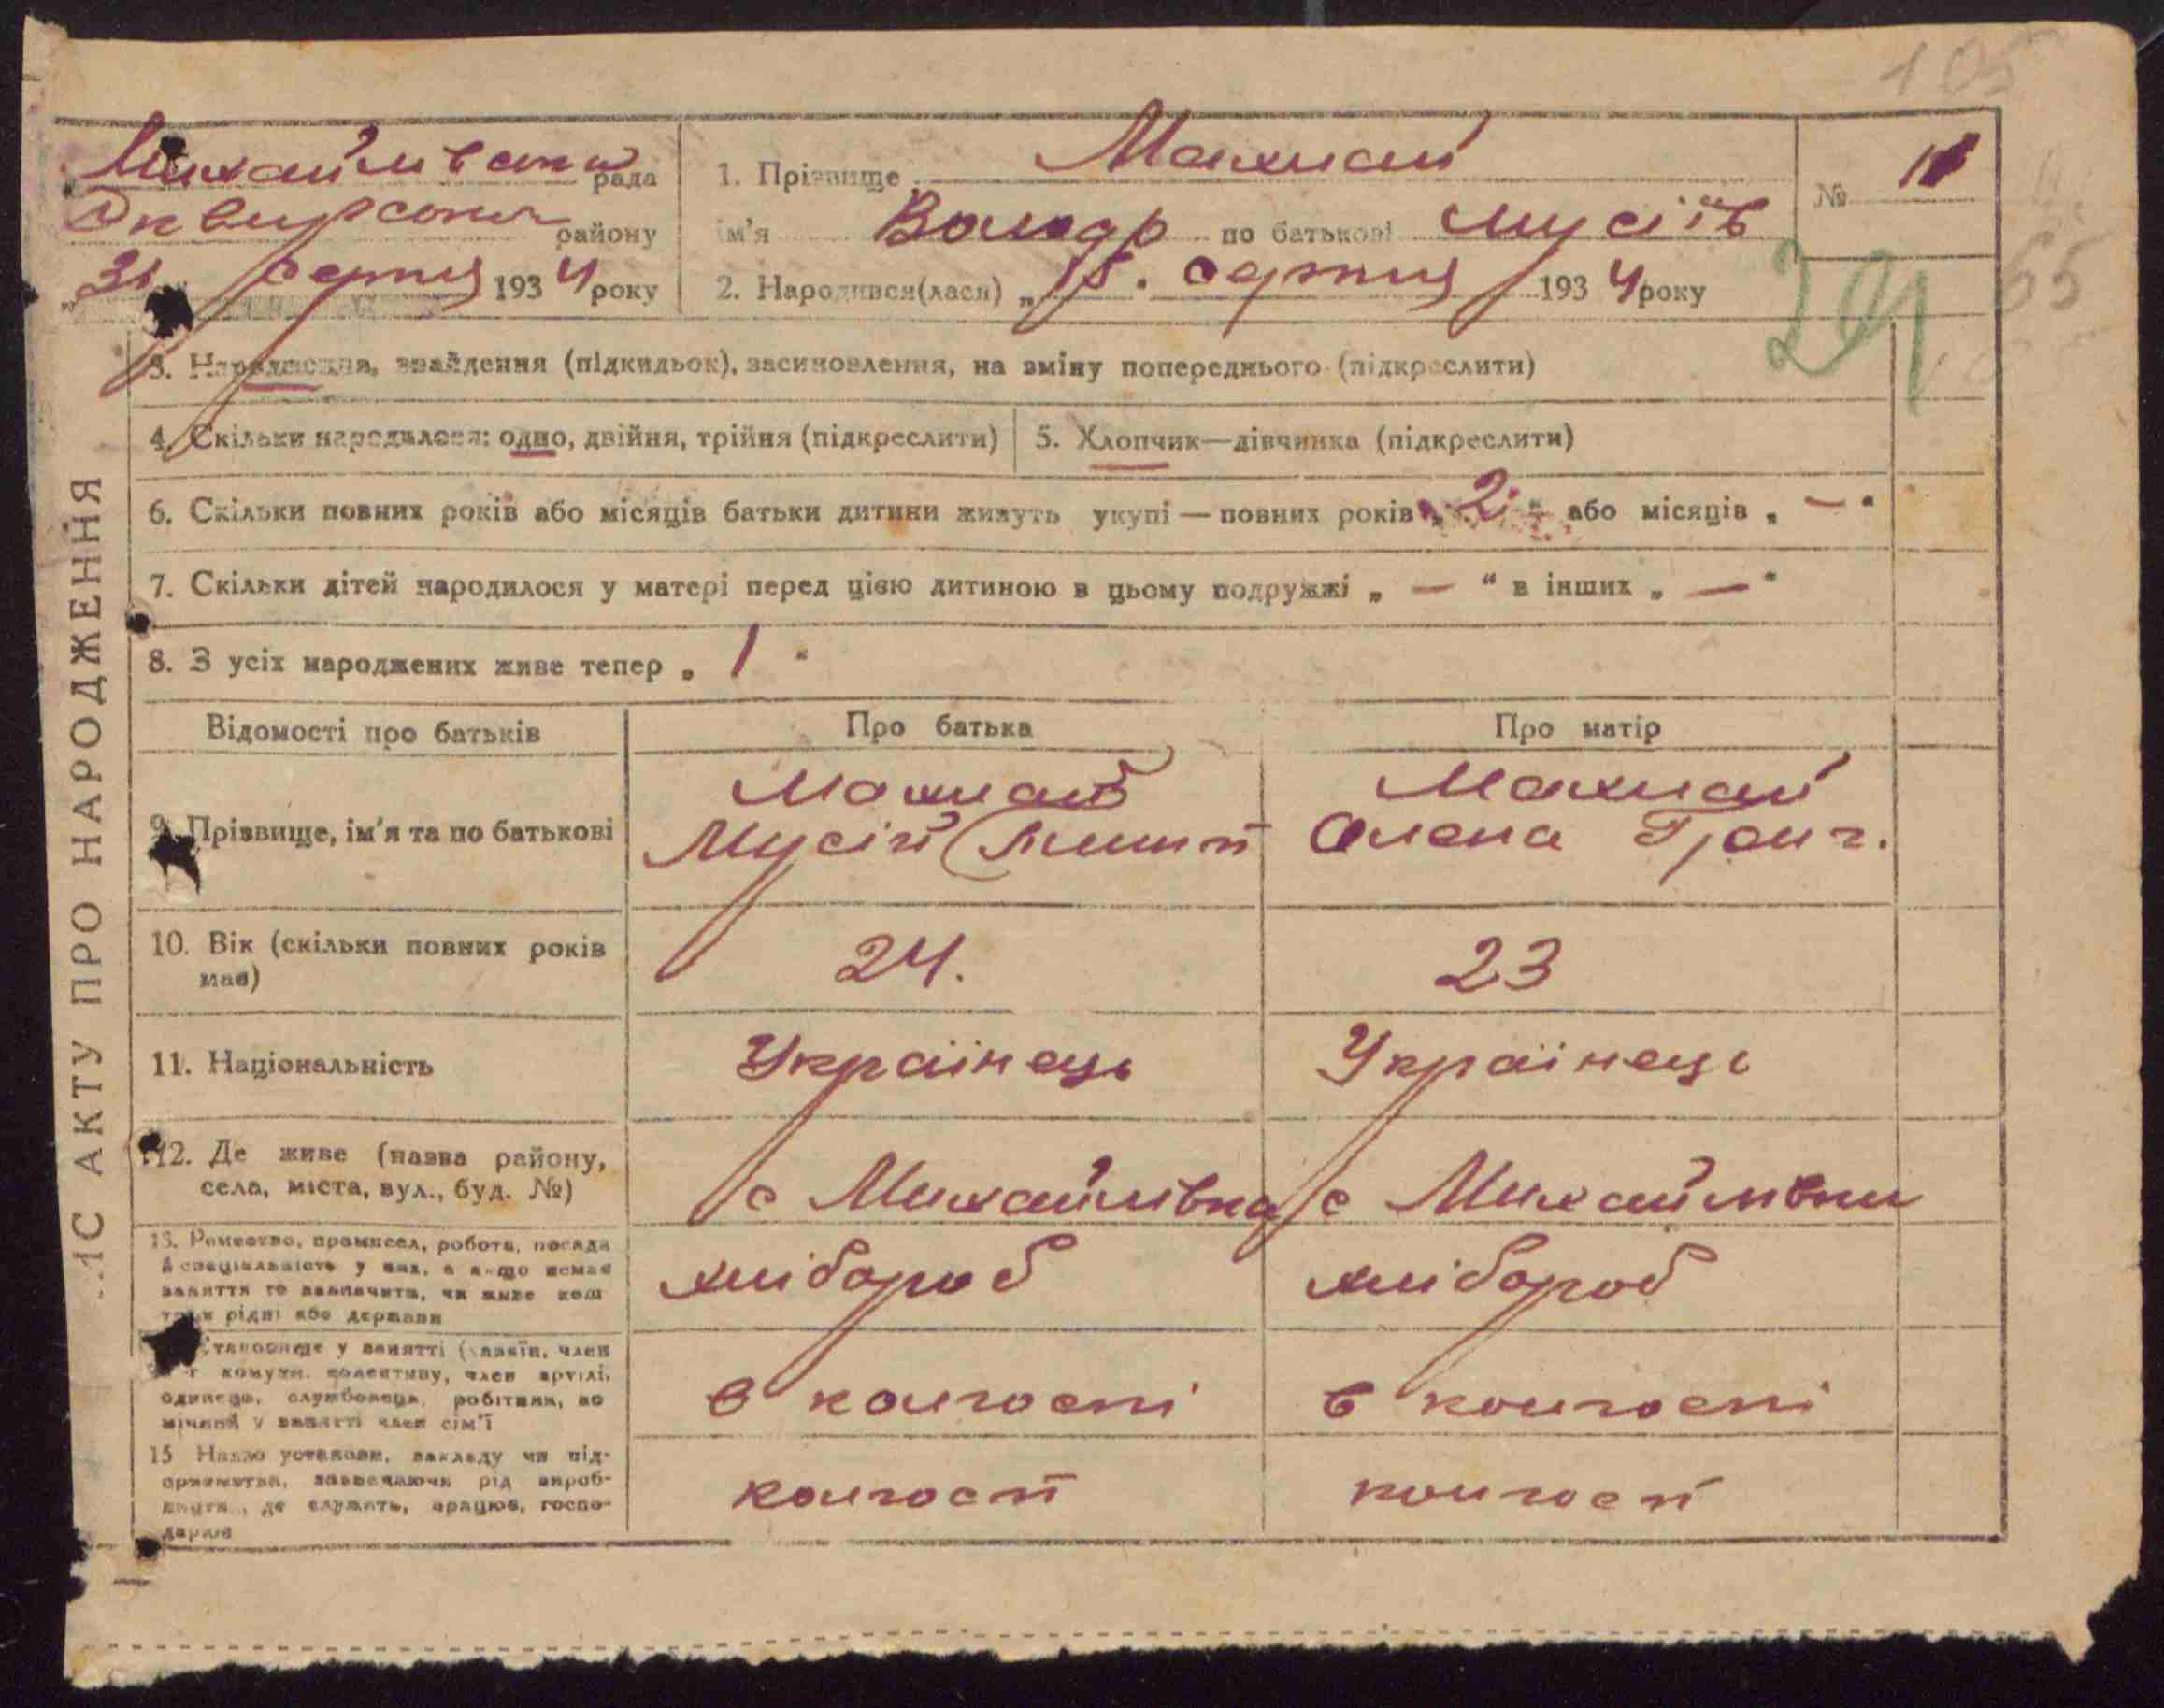 105
Михайлівська рада
Сквирського району
„31 серпня 1934 року
1. Прізвище Махнай
ім'я Володр по батькові Мусіїв
2. Народився(лася) „15" серпня 1934 року
№ 11
24
65
3. Народження, знайдення (підкидьок), засиновлення, на зміну попереднього (підкреслити)
4. Скільки народилося: одно, двійня, трійня (підкреслити)
5. Хлопчик—дівчинка (підкреслити)
6. Скільки повних років або місяців батьки дитини живуть укупі — повних років „2" або місяців „—"
7. Скільки дітей народилося у матері перед цією дитиною в цьому подружжі „—" в інших „—"
8. З усіх народжених живе тепер „1"
Відомості про батьків
Про батька
Про матір
9. Прізвище, ім'я та по батькові
Махнай
Мусій
Махнай
Олена Григ.
10. Вік (скільки повних років має)
24.
23
11. Національність
Українець
Українець
12. Де живе (назва району,
села, міста, вул., буд. №)
с Михайлівка
с Михайлівки
13. Ремество, промисел, робота, посада
й спеціальність у них, а якщо немає
заняття то зазначити, чи живе кош
рідні або держави
хлібороб
хлібороб
становище у занятті (хазяїн, член
комуни, колективу, член артілі,
одинець, службовець, робітник, по
мічний у занятті член сім'ї
в колгоспі
в колгоспі
15 Назва установи, закладу чи під-
приємства, зазначаючи рід вироб-
ництва, де служить, працює, госпо-
дарює
колгосп
колгосп
ИС АКТУ ПРО НАРОДЖЕННЯ